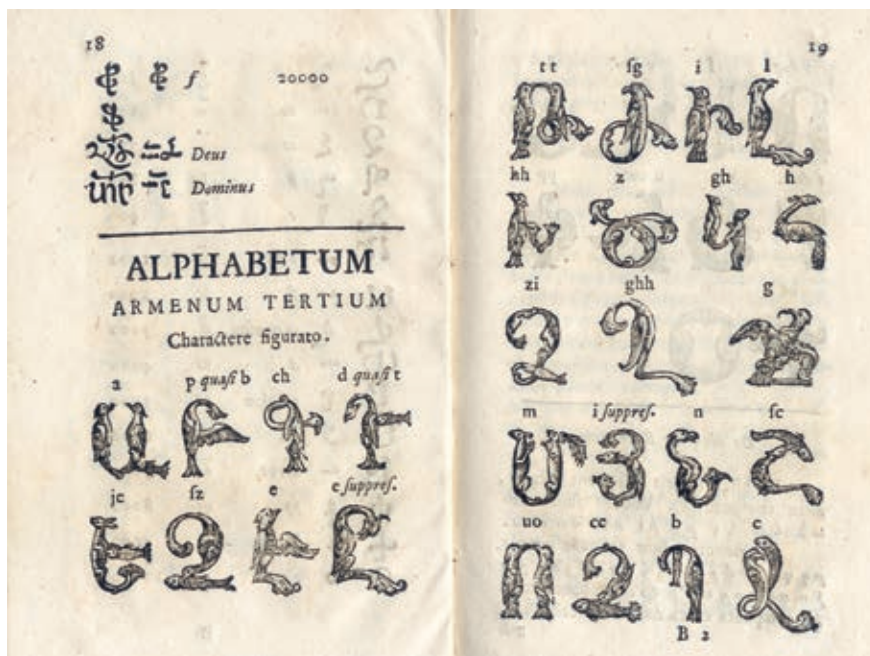 18
f 20000
Deus
Dominus
ALPHABETUM
ARMENUM TERTIUM
Charactere figurato.
a p quaſi b ch d quaſi t
Ա Բ Գ Դ
je ſz e e ſuppreſ.
Ե Զ Է Ը
19
tt ſg i l
Թ Ժ Ի Լ
kh z gh h
Խ Ծ Կ Հ
zi ghh g
Ձ Ղ Ճ
m i ſuppreſ. n ſc
Մ Յ Ն Շ
uo cc b c
Ո Չ Պ Ջ
B 2